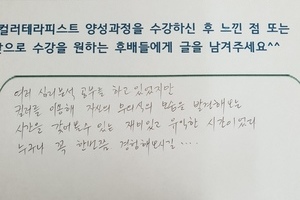 컬러테라피스트 양성과정을 수강하신 후 느낀 점 또는
앞으로 수강을 원하는 후배들에게 글을 남겨주세요^^
여러 심리분석 공부를 하고 있었지만
컬러를 이용해 자신의 무의식의 모습을 발견해보는
시간을 갖어볼수 있는 재미있고 유익한 시간이었다
누구나 꼭 한번쯤 경험해보시길 ....